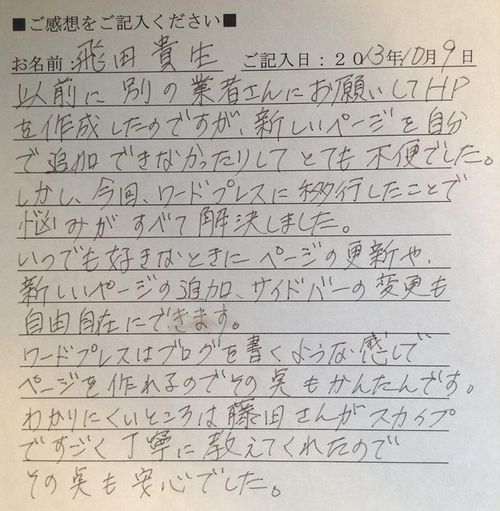 ■ご感想をご記入ください■
お名前：飛田貴生　ご記入日：２０13年10月9日
以前に別の業者さんにお願いしてHP
を作成したのですが、新しいページを自分
で追加できなかったりしてとても不便でした。
しかし、今回、ワードプレスに移行したことで
悩みがすべて解決しました。
いつでも好きなときにページの更新や、
新しいページの追加、サイドバーの変更も
自由自在にできます。
ワードプレスはブログを書くような感じで
ページを作れるのでその点もかんたんです。
わかりにくいところは藤田さんがスカイプ
ですごく丁寧に教えてくれたので
その点も安心でした。